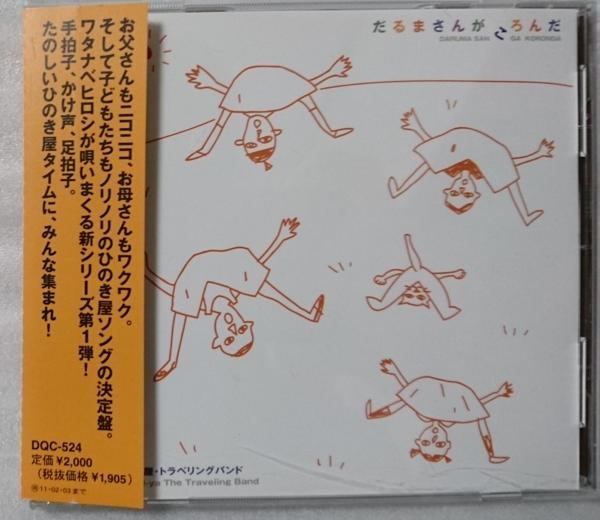 お父さんもニコニコ、お母さんもワクワク。
そして子どもたちもノリノリのひのき屋ソングの決定盤。
ワタナベヒロシが唄いまくる新シリーズ第1弾！
手拍子、かけ声、足拍子。
たのしいひのき屋タイムに、みんな集まれ！
DQC-524
定価￥2,000
（税抜価格￥1,905）
11・02・03まで
だるまさんがころんだ
DARUMA SAN GA KORONDA
屋・トラベリングバンド
-ya The Traveling Band